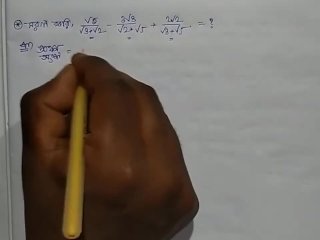 সরল করি, √5/(√3+√2) - 3√3/(√2+√5) + 2√2/(√3+√5) = ?
প্রদত্ত =